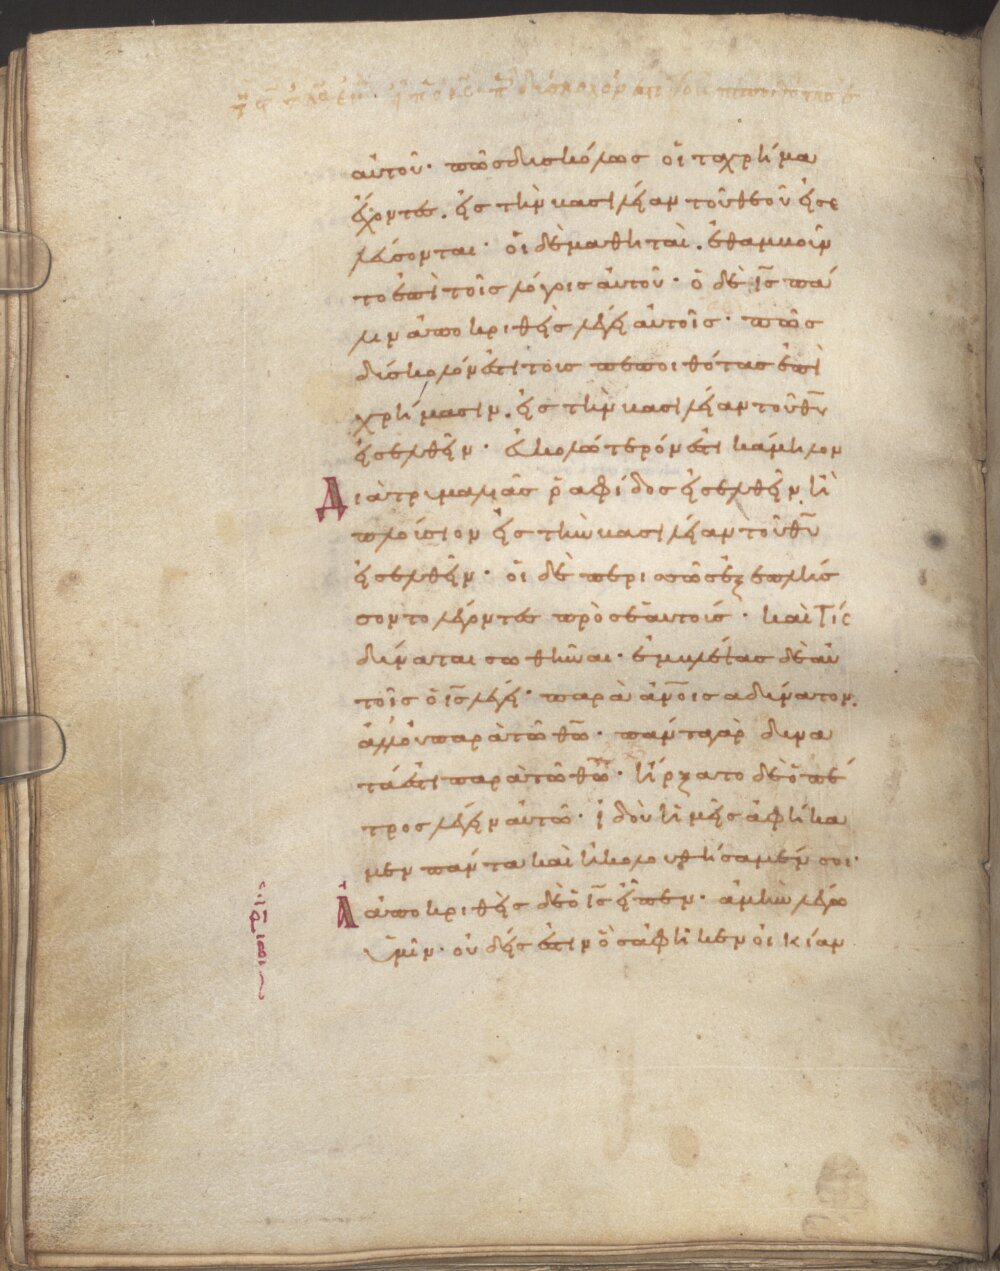 αὐτοῦ· πῶς δυσκόλως οἱ τα χρήμα
ἔχοντες. εἰς τὴν βασιλείαν τοῦ θεοῦ εἰσε
λεύσονται· οἱ δὲ μαθηταὶ. ἐθαμβοῦν
το ἐπὶ τοῖς λόγοις αὐτοῦ· ὁ δὲ ι̅ς̅ πά
λιν ἀποκριθεὶς λέγει αὐτοῖς· πῶς
δύσκολόν ἐστι τοὺς πεποιθότας ἐπὶ
χρήμασιν. εἰς τὴν βασιλείαν τοῦ θ̅υ̅
εἰσελθεῖν· εὐκολώτερόν ἐστι κάμηλον
Διὰ τρυμαλιᾶς ῥαφίδος εἰσελθεῖν ἢ
πλούσιον εἰς τὴν βασιλείαν τοῦ θ̅υ̅
εἰσελθεῖν· οἱ δὲ περισσῶς ἐξεπλήσ
σοντο λέγοντες πρὸς ἑαυτούς· καὶ τίς
δύναται σωθῆναι· ἐμβλέψας δὲ αὐ
τοῖς ὁ ι̅ς̅ λέγει· παρὰ α̅ν̅ο̅ις αδύνατον.
ἀλλ' οὐ παρὰ τῶ θ̅ω̅· πάντα γὰρ δυνα
τά ἐστι παρὰ τῶ θ̅ω̅· ἤρξατο δὲ ὁ πέ
τρος λέγειν αὐτῶ· ἰδοὺ ἡμεῖς ἀφήκα
μεν πάντα καὶ ἠκολουθήσαμέν σοι·
Ἀ ἀποκριθεὶς δὲ ὁ ι̅ς̅ εἶπεν· ἀμὴν λέγω
ὑμῖν· οὐδείς ἐστιν ὃς ἀφῆκεν οἰκίαν